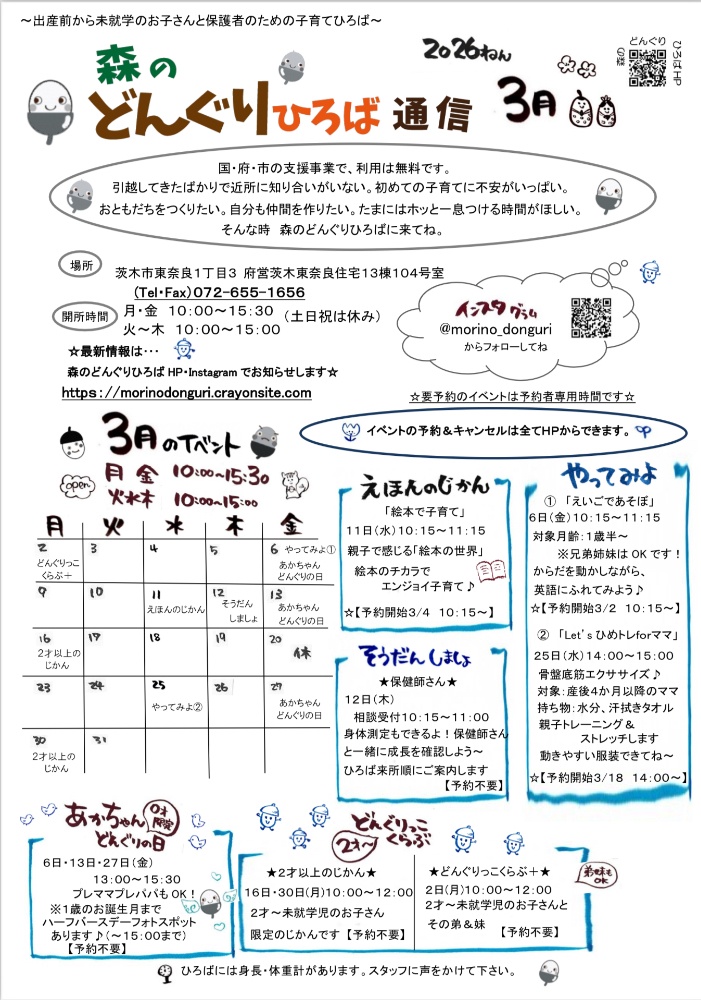 ～出産前から未就学のお子さんと保護者のための子育てひろば～
どんぐりの森
ひろばHP
2026ねん
3月
森の
どんぐりひろば 通信
国・府・市の支援事業で、利用は無料です。
引越してきたばかりで近所に知り合いがいない。初めての子育てに不安がいっぱい。
おともだちをつくりたい。自分も仲間を作りたい。たまにはホッと一息つける時間がほしい。
そんな時 森のどんぐりひろばに来てね。
場所
茨木市東奈良1丁目3 府営茨木東奈良住宅13棟104号室
(Tel・Fax)072-655-1656
開所時間
月・金 10:00～15:30
火～木 10:00～15:00
(土日祝は休み)
☆最新情報は・・・
森のどんぐりひろば HP・Instagram でお知らせします☆
https://morinodonguri.crayonsite.com
インスタグラム
@morino_donguri
からフォローしてね
☆要予約のイベントは予約者専用時間です☆
イベントの予約＆キャンセルは全てHPからできます。
3月のイベント
open
月 金 10:00～15:30
火水木 10:00～15:00
月 火 水 木 金
2 どんぐりっこくらぶ＋
3
4
5
6 やってみよ① あかちゃんどんぐりの日
9
10
11 えほんのじかん
12 そうだんしましょ
13 あかちゃんどんぐりの日
16 2才以上のじかん
17
18
19
20 休
23
24
25 やってみよ②
26
27 あかちゃんどんぐりの日
30 2才以上のじかん
31
えほんのじかん
「絵本で子育て」
11日(水)10:15～11:15
親子で感じる「絵本の世界」
絵本のチカラで
エンジョイ子育て♪
☆【予約開始3/4 10:15～】
そうだんしましょ
★保健師さん★
12日(木)
相談受付10:15～11:00
身体測定もできるよ！保健師さん
と一緒に成長を確認しよう～
ひろば来所順にご案内します
【予約不要】
やってみよ
① 「えいごであそぼ」
6日(金)10:15～11:15
対象月齢：1歳半～
※兄弟姉妹はOKです！
からだを動かしながら、
英語にふれてみよう♪
☆【予約開始3/2 10:15～】
② 「Let's ひめトレforママ」
25日(水)14:00～15:00
骨盤底筋エクササイズ♪
対象：産後4か月以降のママ
持ち物：水分、汗拭きタオル
親子トレーニング＆
ストレッチします
動きやすい服装できてね～
☆【予約開始3/18 14:00～】
あかちゃん
0才限定
どんぐりの日
6日・13日・27日(金)
13:00～15:30
プレママプレパパもOK！
※1歳のお誕生月まで
ハーフバースデーフォトスポット
あります♪(～15:00まで)
【予約不要】
どんぐりっこ
くらぶ
2才～
★2才以上のじかん★
16日・30日(月)10:00～12:00
2才～未就学児のお子さん
限定のじかんです【予約不要】
★どんぐりっこくらぶ＋★
2日(月)10:00～12:00
2才～未就学児のお子さんと
その弟＆妹
【予約不要】
弟妹もOK
ひろばには身長・体重計があります。スタッフに声をかけて下さい。